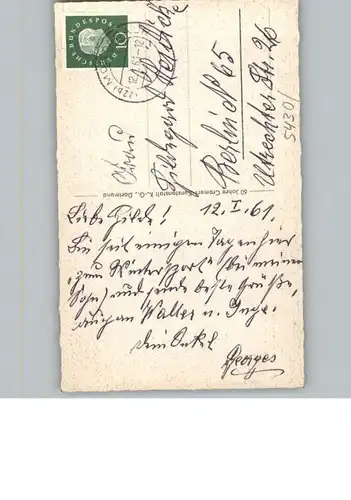 DEUTSCHE BUNDESPOST
10
12.1.61-12
Frau
Hildegard
Berlin N 65
Utrechter Str. 26
5430/
60 Jahre Cramers Kunstanstalt K.-G., Dortmund
Liebe Hilde! 12. I. 61.
Bin seit einigen Tagen hier
"zum Wintersport" (bei meinem
Sohn) und sende beste Grüße,
auch an Walter u. Inge.
dein Onkel
Georges